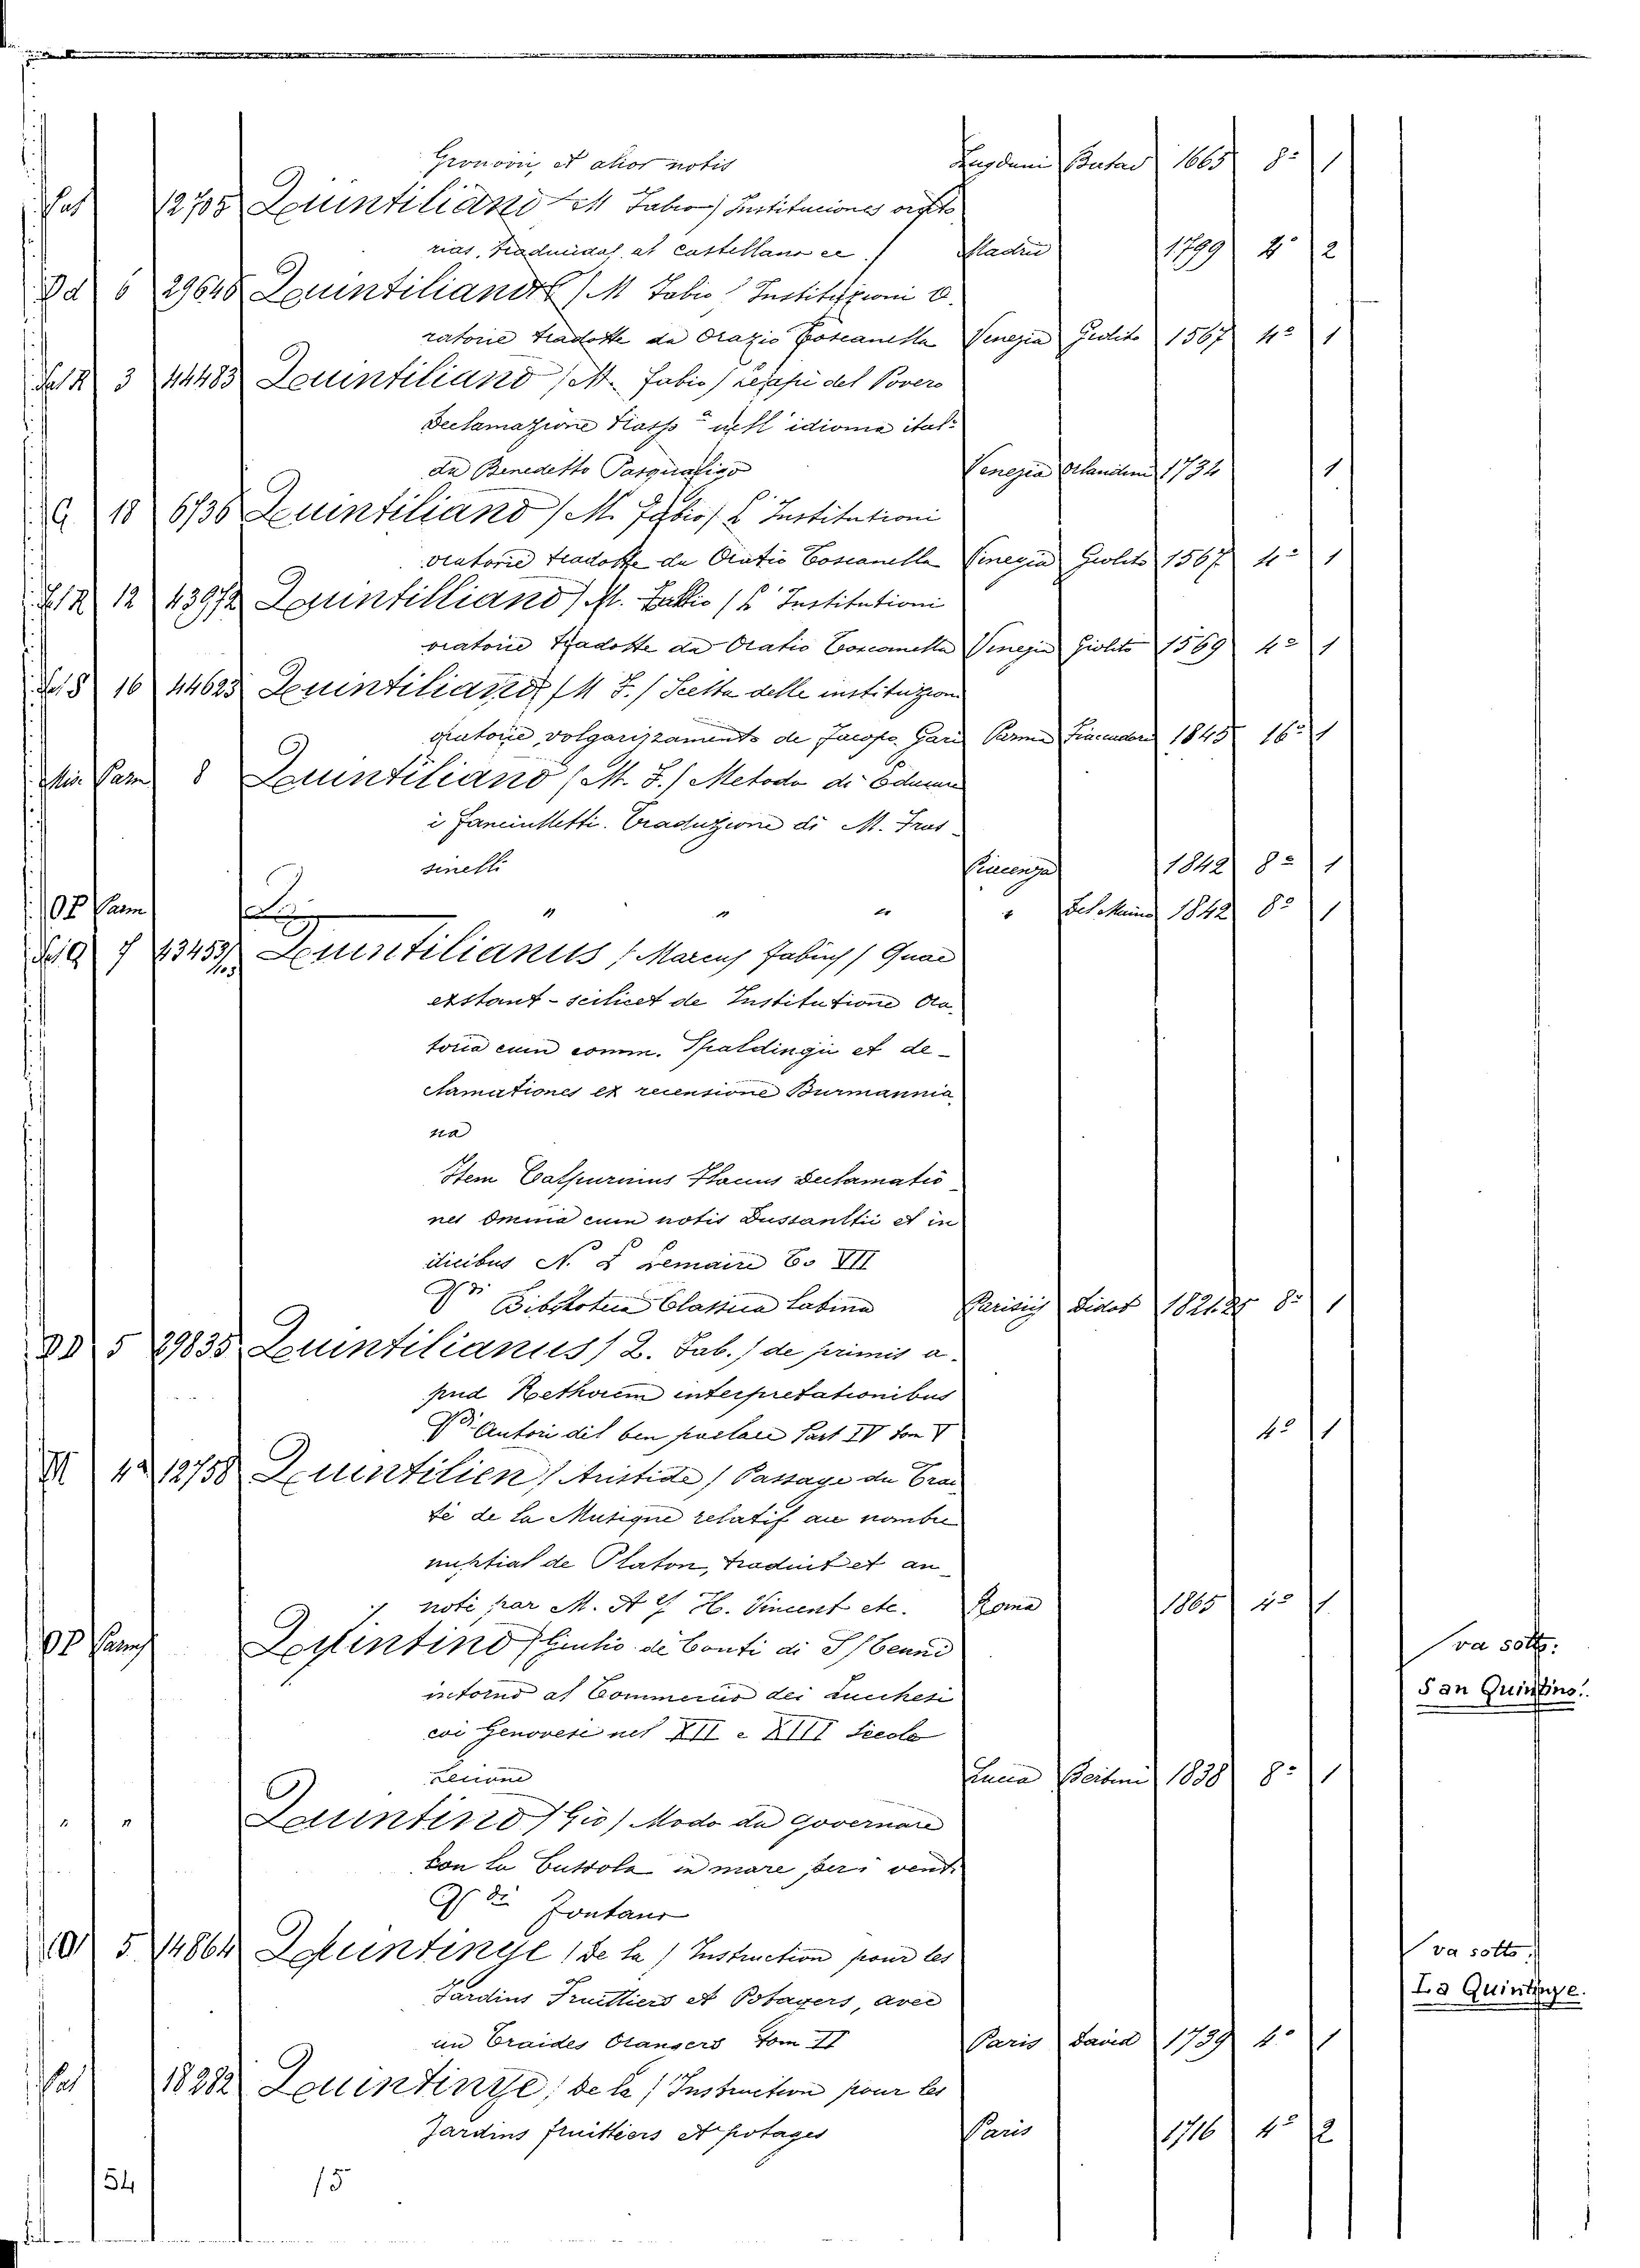 Gronovii, et alior notis Lugduni Batav 1665 8° 1
12705 Quintiliano (M Fabio) Instituciones orato
rias, traducidas al castellano ec. / Madrid 1799 4° 2
6 29646 Quintiliano (M Fabio) Instituzioni o
ratorie tradotte da Orazio Toscanella Venezia Giolito 1567 4° 1
3 44483 Quintiliano (M. Fabio) del Povero
Declamazione nell' idioma ital:
da Benedetto Pasqualigo Venezia Orlandini 1734 1
G 18 6736 Quintiliano (M. Fabio) L' Institutioni
oratorie tradotte da Oratio Toscanella Vinegia Giolito 1567 4° 1
12 43972 Quintilliano (M. Fabio) L' Institutioni
oratorie tradotte da Oratio Toscanella Venezia Giolito 1569 4° 1
16 44623 Quintiliano (M F.) Scelta delle instituzioni
oratorie, volgarizzamento de Jacopo Gari Parma Fiaccadori 1845 16° 1
Min Parm 8 Quintiliano (M. F.) Metodo di Educare
i Fanciulletti. Traduzione di M. Frus
sinelli Piacenza 1842 8° 1
OP Parm " " " " Del Maino 1842 8° 1
7 43453 Quintilianus (Marcus Fabius) Quae
extant - scilicet de Institutione Ora
toria cum comm. Spaldingii et de-
clamationes ex recensione Burmannia
na
Item Calpurnius Flaccus Declamatio
nes Omnia cum notis et in
dicibus N. E Lemaire To VII
Biblioteca Classica Latina Parisiis Didot 1821.25 8° 1
5 29835 Quintilianus (L. Fab.) de primis a
pud Rethorem interpretationibus
Autori del ben parlare Part IV tom V 4° 1
M 4 12758 Quintilien (Aristide) Passage du Trai
té de la Musique relatif au nombre
nuptial de Platon, traduit et an
noté par M. A J H. Vincent etc. Roma 1865 4° 1
OP Parm Quintino (Giulio di Conti di S) Cenni
intorno al Commercio dei Lucchesi
coi Genovesi nel XII e XIII Secolo
Lezione Lucca Bertini 1838 8° 1
" " Quintino (Gio) Modo da Governare
con la Bussola in mare per i venti
di Fontana
O 5 14864 Quintinye (de la) Instruction pour les
Jardins Fruitiers et Potagers, avec
un Traides Orangers Tom II Paris David 1739 4° 1
18282 Quintinye (de la) Instruction pour les
Jardins fruitiers et potages Paris 1716 4° 2
va sotto:
San Quintino.
va sotto:
La Quintinye.
54 15